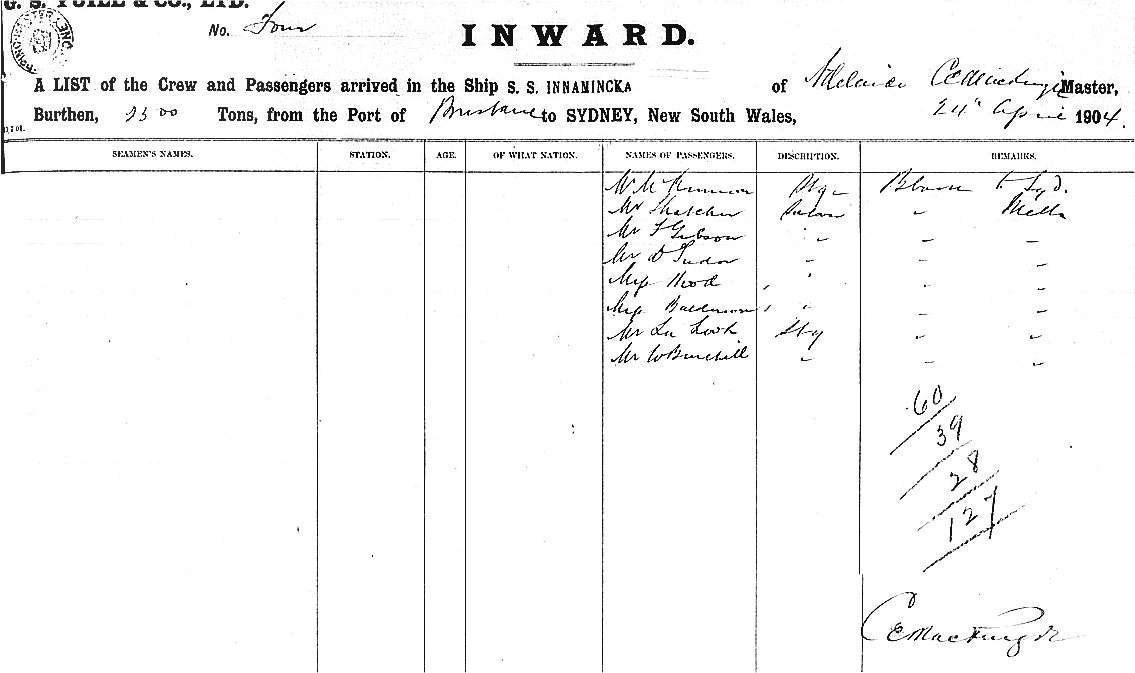 G. S. YUILL & CO., LTD.
No. Four
INWARD.
A LIST of the Crew and Passengers arrived in the Ship S. S. INNAMINCKA of Adelaide Master,
Burthen, 2500 Tons, from the Port of Brisbane to SYDNEY, New South Wales, 24" April 1904.
SEAMEN'S NAMES. STATION. AGE. OF WHAT NATION. NAMES OF PASSENGERS. DESCRIPTION. REMARKS.
Stge Bbane to Syd.
Mr Thatcher Saloon " Melb
Mr F Gibson " " "
Mr D Tudor " " "
Miss Hood " " "
Miss " " "
Mr Stg " "
Mr W Burchill " " "
60
39
28
127